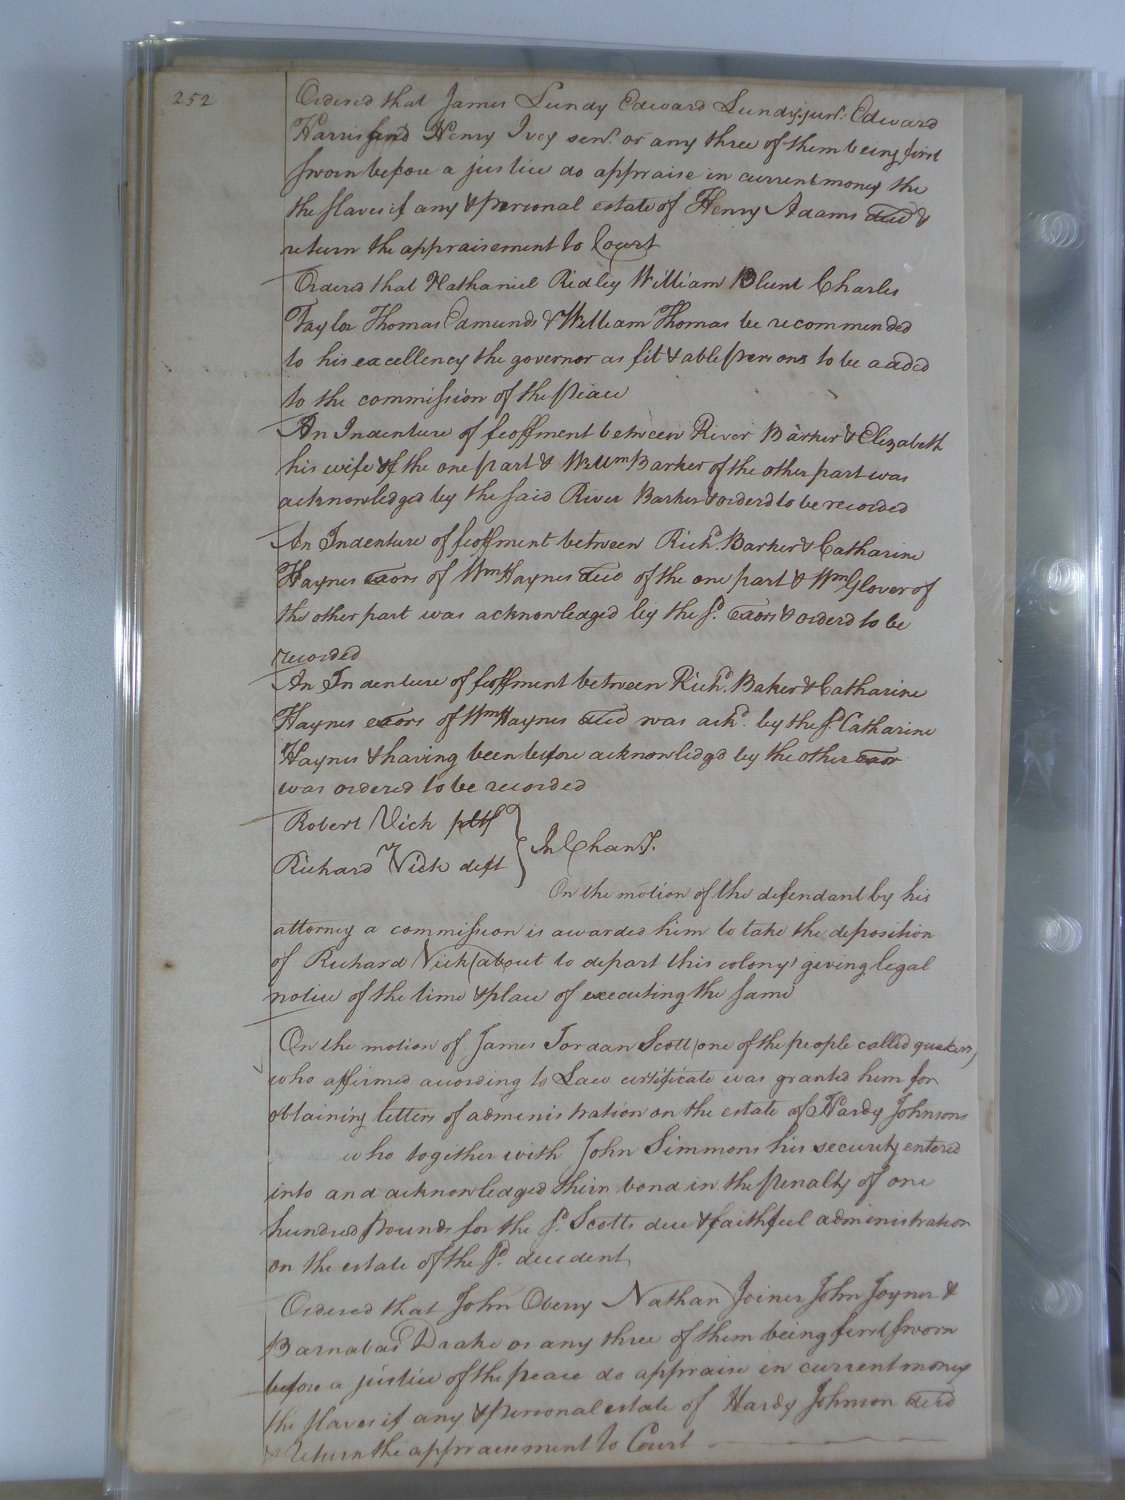 252
Ordered that James Lundy Edward Lundy junr. Edward
Harris and Henry Ivey senr. or any three of them being first
sworn before a justice do appraise in current money the
the slaves if any & personal estate of Henry Adams decd &
return the appraisement to Court
Ordered that Nathaniel Ridley William Blunt Charles
Taylor Thomas Edmunds & William Thomas be recommended
to his excellency the governor as fit & able persons to be added
to the commission of the peace
An Indenture of feoffment between River Barker & Elizabeth
his wife of the one part & Willm Barker of the other part was
acknowledged by the said River Barker & orderd to be recorded
An Indenture of feoffment between Richd. Barker & Catharine
Haynes exors of Wm Haynes decd of the one part & Wm Glover of
the other part was acknowledged by the sd. exors & orderd to be
recorded
An Indenture of feoffment between Richd. Baker & Catharine
Haynes exors of Wm Haynes decd was ackd. by the sd Catharine
Haynes & having been before acknowledgd by the other exor
was ordered to be recorded
Robert Vick pltf
Richard Vick deft
In Chany.
On the motion of the defendant by his
attorney a commission is awarded him to take the deposition
of Richard Vick (about to depart this colony) giving legal
notice of the time & place of executing the same
On the motion of James Jordan Scott (one of the people called quakers)
who affirmed according to Law certificate was granted him for
obtaining letters of administration on the estate of Hardy Johnsons
who together with John Simmons his security entered
into and acknowledged their bond in the penalty of one
hundred pounds for the sd. Scotts due & faithful administration
on the estate of the sd. decedent
Ordered that John Oberry Nathan Joiner John Joyner &
Barnabas Drake or any three of them being first sworn
before a justice of the peace do appraise in current money
the slaves if any & personal estate of Hardy Johnson decd
& return the appraisement to Court